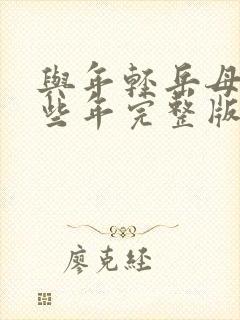 與年輕岳母
些年完整版
廖克經